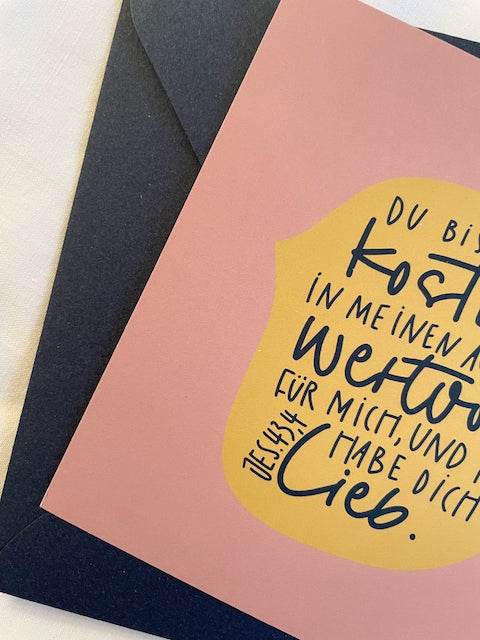 DU BIS
kost
IN MEINEN A
wertvo
FÜR MICH, UND
HABE DICH
Lieb.
JES. 43,4